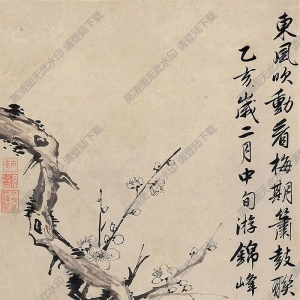 東風吹動看梅期簫鼓聯
乙亥歲二月中旬游錦峰